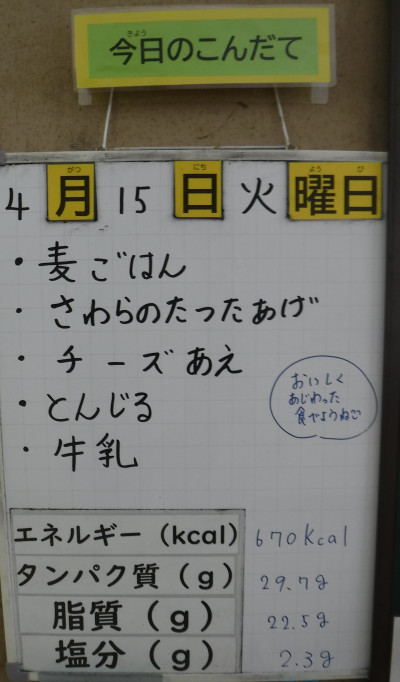 今日のこんだて
4月15日火曜日
・麦ごはん
・さわらのたったあげ
・チーズあえ
・とんじる
・牛乳
おいしく
あじわった
食べようねü
エネルギー（kcal） 670kcal
タンパク質（g） 29.7g
脂質（g） 22.5g
塩分（g） 2.3g